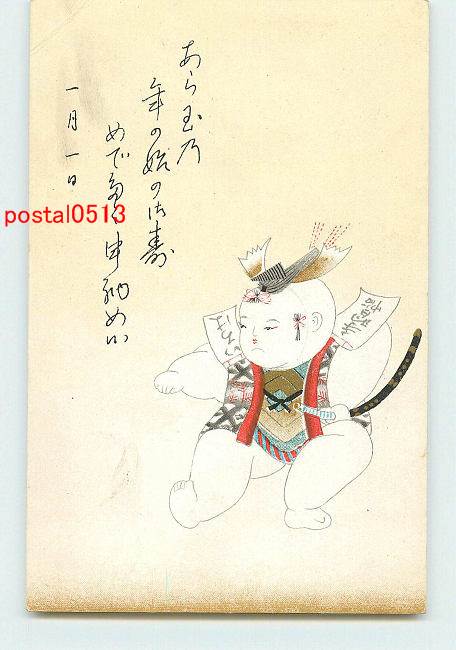 あら玉乃
年の始の御寿
めで多く申納め候
一月一日
postal0513